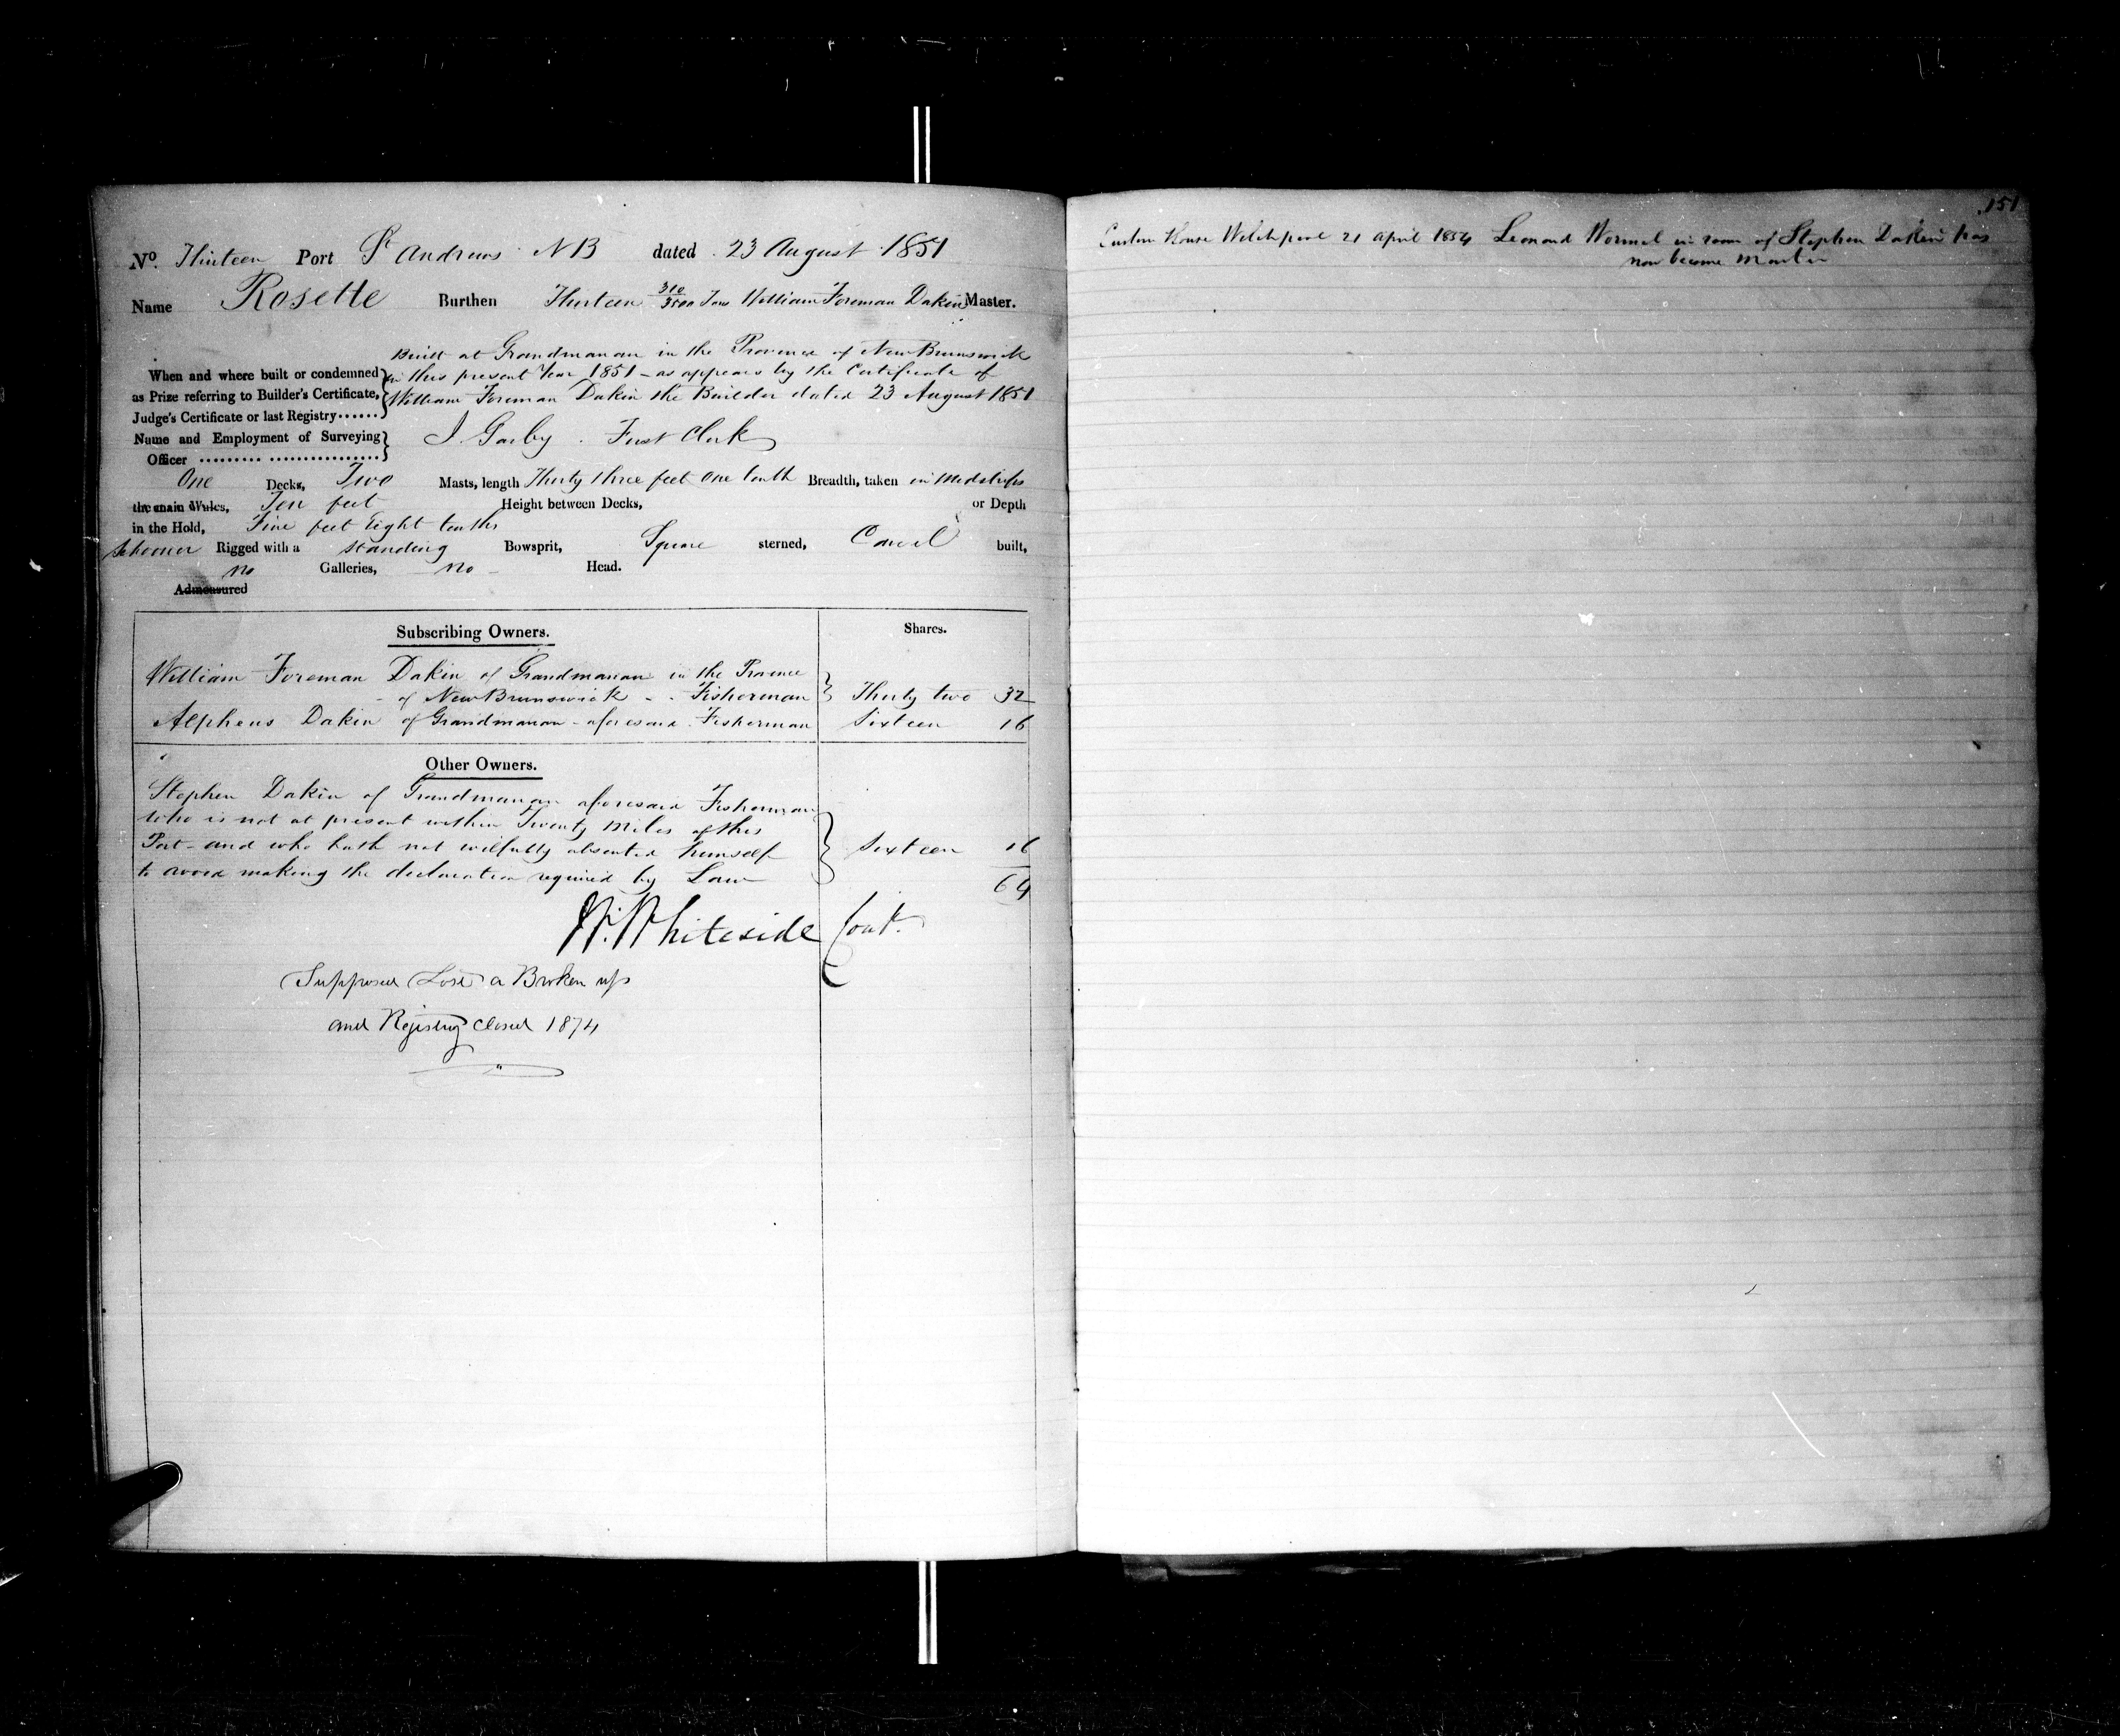 No. Thirteen Port St Andrews NB dated 23 August 1851
Name Rosette Burthen Thirteen 310/3500 Tons William Foreman Dakin Master.
Built at Grandmanan in the Province of New Brunswick
When and where built or condemned in this present Year 1851 - as appears by the Certificate of
as Prize referring to Builder's Certificate, William Foreman Dakin the Builder dated 23 August 1851
Judge's Certificate or last Registry......
Name and Employment of Surveying J. First Clerk
Officer ......... ................
One Decks, Two Masts, length Thirty three feet one tenth Breadth, taken in Midships
the main Wales, Ten feet Height between Decks, or Depth
in the Hold, Five feet Eight tenths
Schooner Rigged with a standing Bowsprit, Square sterned, Carvel built,
no Galleries, no Head.
Admeasured
Subscribing Owners. Shares.
William Foreman Dakin of Grandmanan in the Province
of New Brunswick - Fisherman Thirty two 32
Alpheus Dakin of Grandmanan - aforesaid Fisherman Sixteen 16
Other Owners.
Stephen Dakin of Grandmanan aforesaid Fisherman
who is not at present within Twenty Miles of this
Port - and who hath not wilfully absented himself Sixteen 16
to avoid making the declaration required by Law 64
W. Whiteside Cont.
Supposed Lost or Broken up
and Registry closed 1874
151
Custom House Welchpool 21 April 1854 Leonard Wormel in room of Stephen Dakin has
now become Master